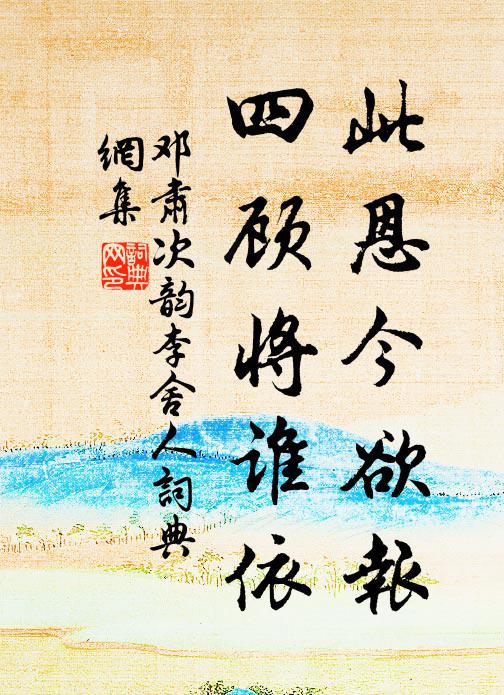 此恩今欲報
四顾將谁依
邓肅次韵李舍人詞典
網集
詞典
网印